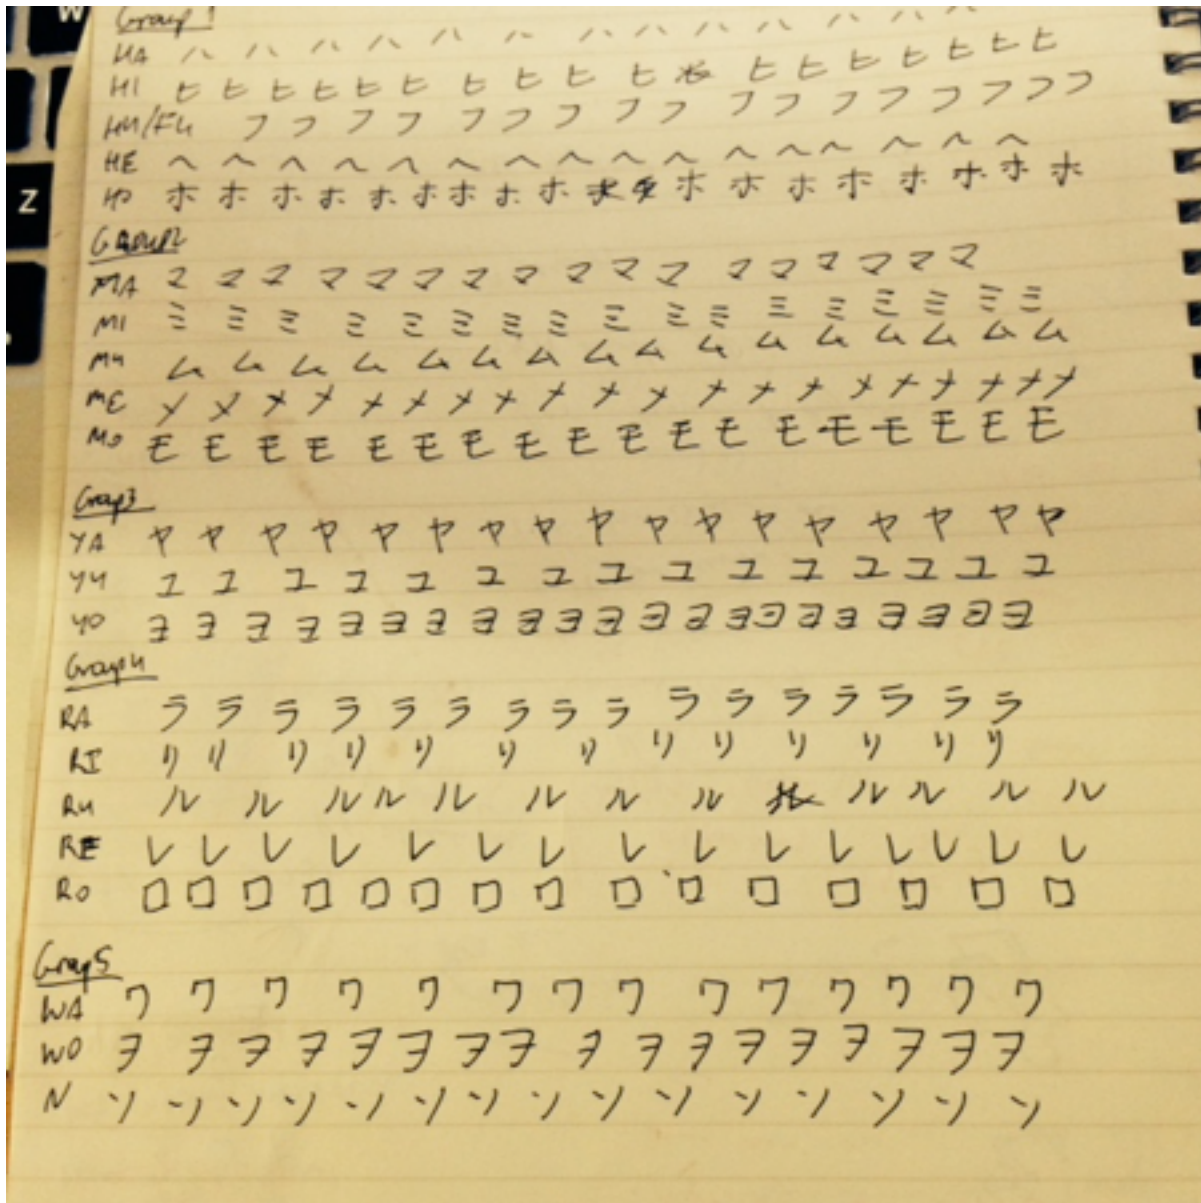 Group 1
HA ハ ハ ハ ハ ハ ハ ハ ハ ハ ハ ハ ハ ハ
HI ヒ ヒ ヒ ヒ ヒ ヒ ヒ ヒ ヒ ヒ ヒ ヒ ヒ ヒ ヒ ヒ ヒ
HU/FU フ フ フ フ フ フ フ フ フ フ フ フ フ フ フ フ フ
HE ヘ ヘ ヘ ヘ ヘ ヘ ヘ ヘ ヘ ヘ ヘ ヘ ヘ ヘ ヘ ヘ
HO ホ ホ ホ ホ ホ ホ ホ ホ ホ ホ ホ ホ ホ ホ ホ ホ ホ
GROUP2
MA マ マ マ マ マ マ マ マ マ マ マ マ マ マ マ マ マ
MI ミ ミ ミ ミ ミ ミ ミ ミ ミ ミ ミ ミ ミ ミ ミ ミ ミ
MU ム ム ム ム ム ム ム ム ム ム ム ム ム ム ム ム
ME メ メ メ メ メ メ メ メ メ メ メ メ メ メ メ メ メ メ メ メ
MO モ モ モ モ モ モ モ モ モ モ モ モ モ モ モ モ モ モ
Group3
YA ヤ ヤ ヤ ヤ ヤ ヤ ヤ ヤ ヤ ヤ ヤ ヤ ヤ ヤ ヤ ヤ ヤ
YU ユ ユ ユ ユ ユ ユ ユ ユ ユ ユ ユ ユ ユ ユ ユ
YO ヨ ヨ ヨ ヨ ヨ ヨ ヨ ヨ ヨ ヨ ヨ ヨ ヨ ヨ ヨ ヨ ヨ ヨ ヨ ヨ ヨ
Group4
RA ラ ラ ラ ラ ラ ラ ラ ラ ラ ラ ラ ラ ラ ラ ラ ラ
RI リ リ リ リ リ リ リ リ リ リ リ リ リ
RU ル ル ル ル ル ル ル ル ル ル ル ル
RE レ レ レ レ レ レ レ レ レ レ レ レ レ レ レ
RO ロ ロ ロ ロ ロ ロ ロ ロ ロ ロ ロ ロ ロ ロ ロ
Group5
WA ワ ワ ワ ワ ワ ワ ワ ワ ワ ワ ワ ワ ワ ワ
WO ヲ ヲ ヲ ヲ ヲ ヲ ヲ ヲ ヲ ヲ ヲ ヲ ヲ ヲ ヲ ヲ ヲ
N ン ン ン ン ン ン ン ン ン ン ン ン ン ン ン
W
Z